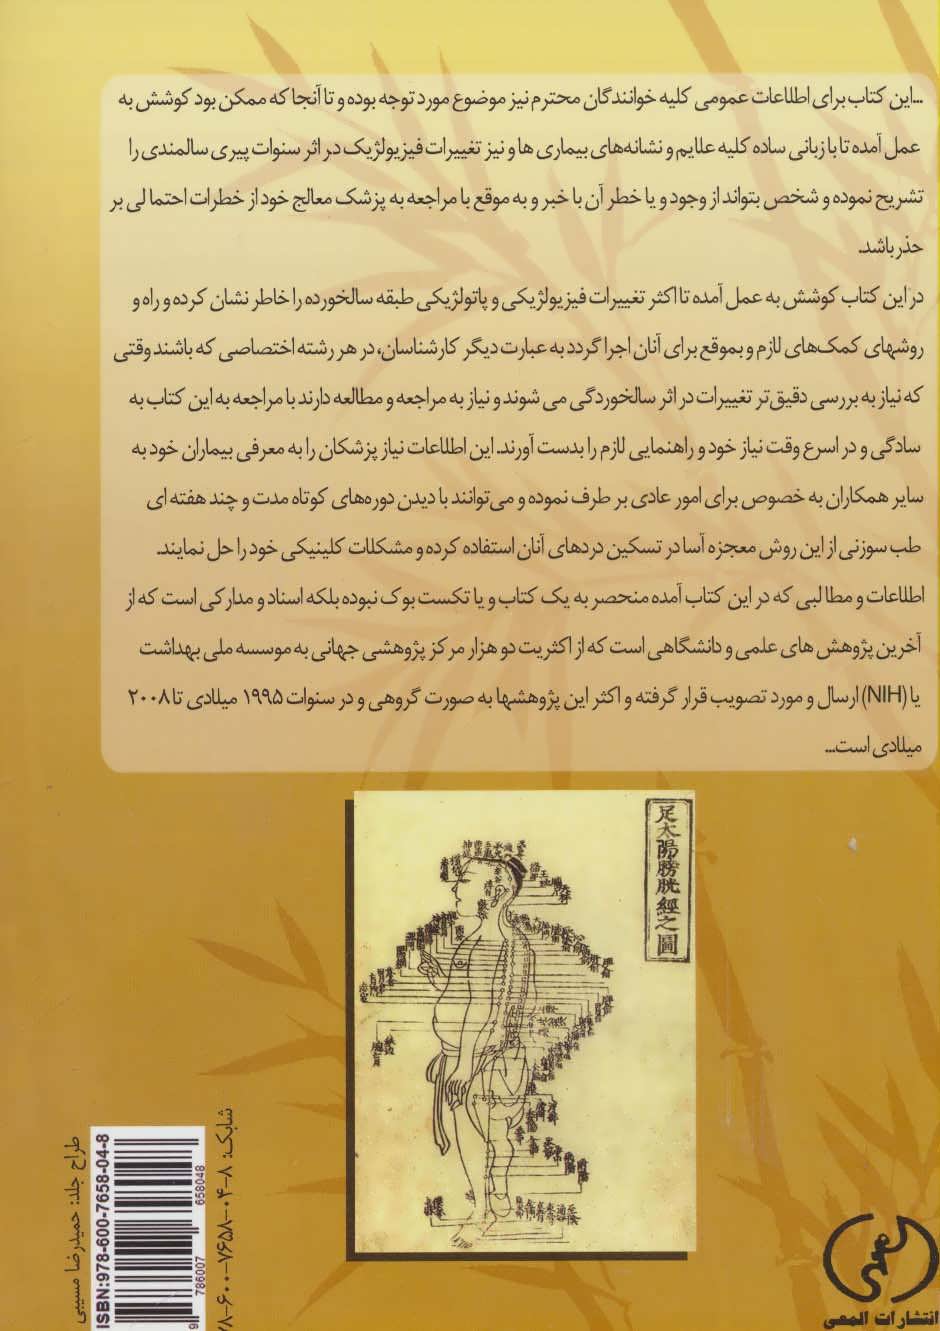 ...این کتاب برای اطلاعات عمومی کلیه خوانندگان محترم نیز موضوع مورد توجه بوده و تا آنجا که ممکن بود کوشش به
عمل آمده تا با زبانی ساده کلیه علایم و نشانه‌های بیماری ها و نیز تغییرات فیزیولژیک در اثر سنوات پیری سالمندی را
تشریح نموده و شخص بتواند از وجود و یا خطر آن با خبر و به موقع با مراجعه به پزشک معالج خود از خطرات احتما لی بر
حذر باشد.
در این کتاب کوشش به عمل آمده تا اکثر تغییرات فیزیولژیکی و پاتولژیکی طبقه سالخورده را خاطر نشان کرده و راه و
روشهای کمک‌های لازم و بموقع برای آنان اجرا گردد به عبارت دیگر کارشناسان، در هر رشته اختصاصی که باشند وقتی
که نیاز به بررسی دقیق‌تر تغییرات در اثر سالخوردگی می شوند و نیاز به مراجعه و مطالعه دارند با مراجعه به این کتاب به
سادگی و در اسرع وقت نیاز خود و راهنمایی لازم را بدست آورند. این اطلاعات نیاز پزشکان را به معرفی بیماران خود به
سایر همکاران به خصوص برای امور عادی بر طرف نموده و می‌توانند با دیدن دوره‌های کوتاه مدت و چند هفته ای
طب سوزنی از این روش معجزه آسا در تسکین دردهای آنان استفاده کرده و مشکلات کلینیکی خود را حل نمایند.
اطلاعات و مطا لبی که در این کتاب آمده منحصر به یک کتاب و یا تکست بوک نبوده بلکه اسناد و مدارکی است که از
آخرین پژوهش های علمی و دانشگاهی است که از اکثریت دو هزار مرکز پژوهشی جهانی به موسسه ملی بهداشت
یا (NIH) ارسال و مورد تصویب قرار گرفته و اکثر این پژوهشها به صورت گروهی و در سنوات ۱۹۹۵ میلادی تا ۲۰۰۸
میلادی است...
足太陽膀胱經之圖
طراح جلد: حمیدرضا مسیبی
ISBN:978-600-7658-04-8
9 786007 658048
شابک: ۸-۰۴-۷۶۵۸-۶۰۰-
انتشارات المعی